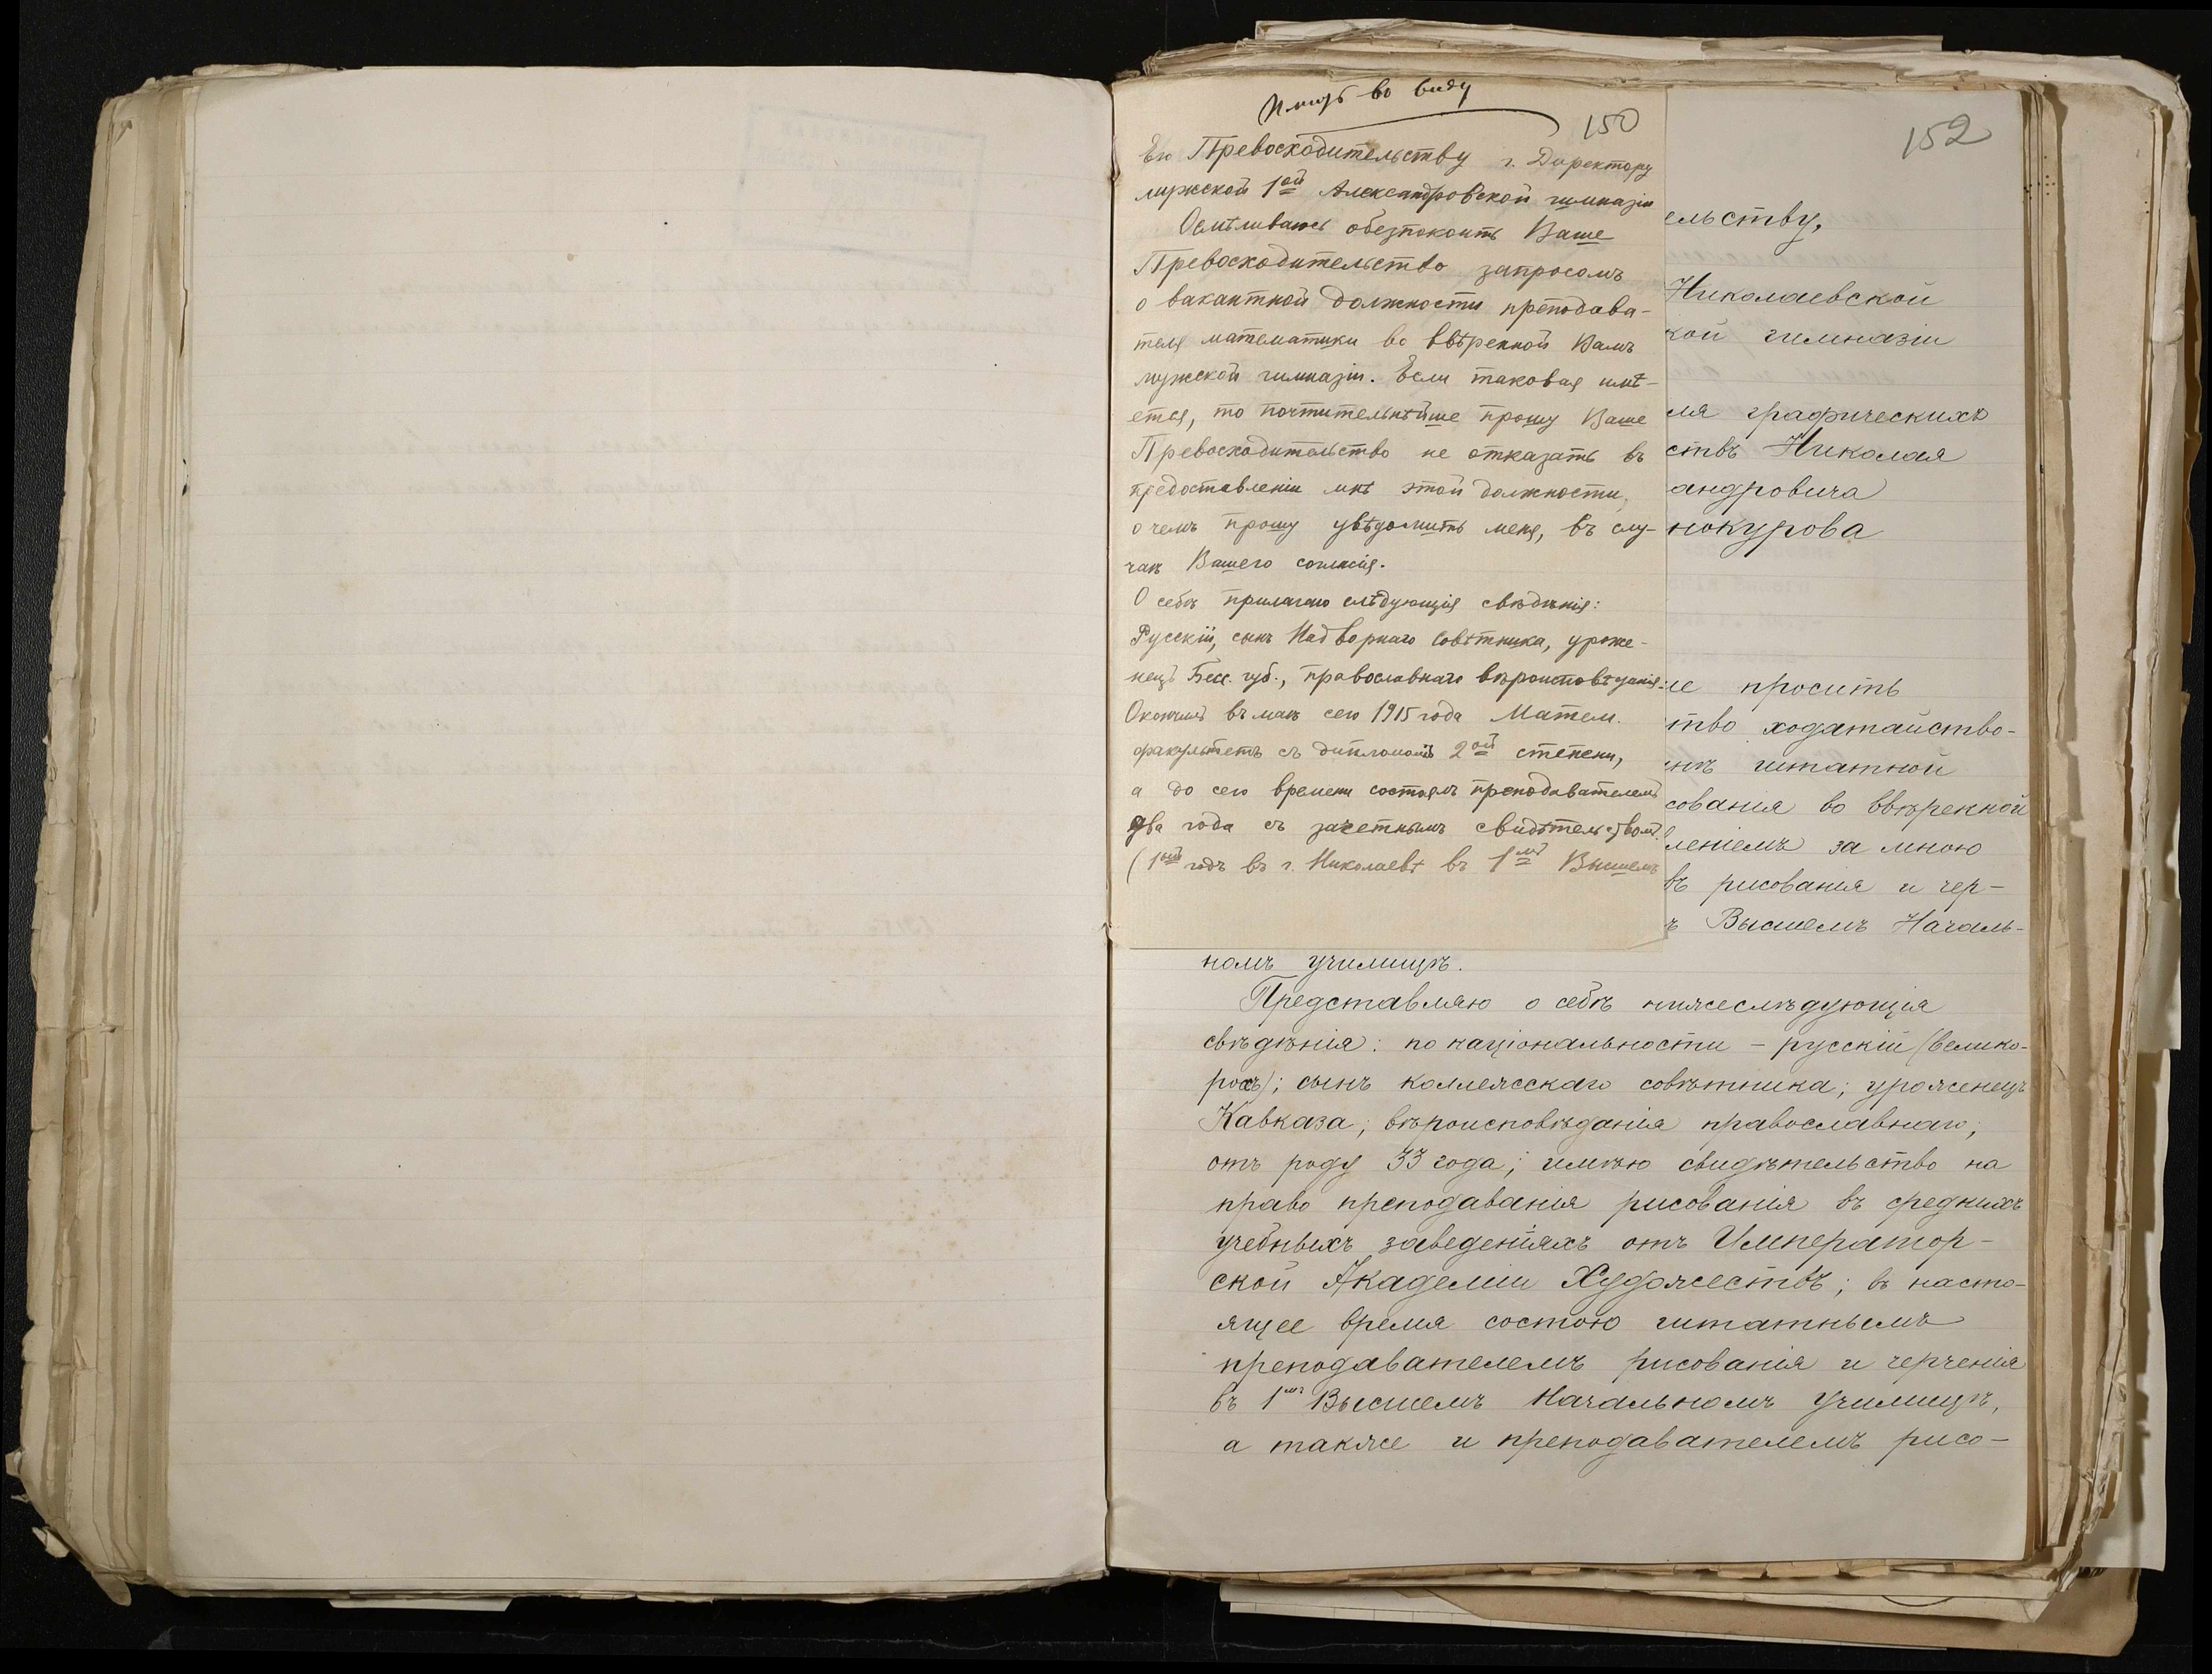 Имѣть во виду
150
Его Превосходительству г. Директору
мужской 1ой Александровской гимназіи
Осмѣливаюсь обезпокоить Ваше
Превосходительство запросомъ
о вакантной должности преподава-
теля математики во ввѣренной Вамъ
мужской гимназіи. Если таковая имѣ-
ется, то почтительнѣйше прошу Ваше
Превосходительство не отказать въ
предоставленіи мнѣ этой должности,
о чемъ прошу увѣдомить меня, въ слу-
чаѣ Вашего согласія.
О себѣ прилагаю слѣдующія свѣдѣнія:
Русскій, сынъ Надворнаго Совѣтника, уроже-
нецъ Бесс. губ., православнаго вѣроисповѣданія.
Окончилъ въ маѣ сего 1915 года Матем.
факультетъ съ дипломомъ 2ой степени,
а до сего времени состоялъ преподавателемъ
два года съ зачетнымъ свидѣтельствомъ.
(1ый годъ въ г. Николаевѣ въ 1мъ Высшемъ
152
ельству,
Николаевской
кой гимназіи
ля графическихъ
ствъ Николая
андровича
нокурова
ше просить
тво ходатайство-
штатной
сованія во ввѣренной
леніемъ за мною
въ рисованія и чер-
ъ Высшемъ Началь-
номъ училищѣ.
Представляю о себѣ нижеслѣдующія
свѣдѣнія: по національности – русскій (велико-
россъ); сынъ коллежскаго совѣтника; уроженецъ
Кавказа; вѣроисповѣданія православнаго;
отъ роду 33 года; имѣю свидѣтельство на
право преподаванія рисованія въ среднихъ
учебныхъ заведеніяхъ отъ Император-
ской Академіи Художествъ; въ насто-
ящее время состою штатнымъ
преподавателемъ рисованія и черченія
въ 1мъ Высшемъ Начальномъ Училищѣ,
а также и преподавателемъ рисо-